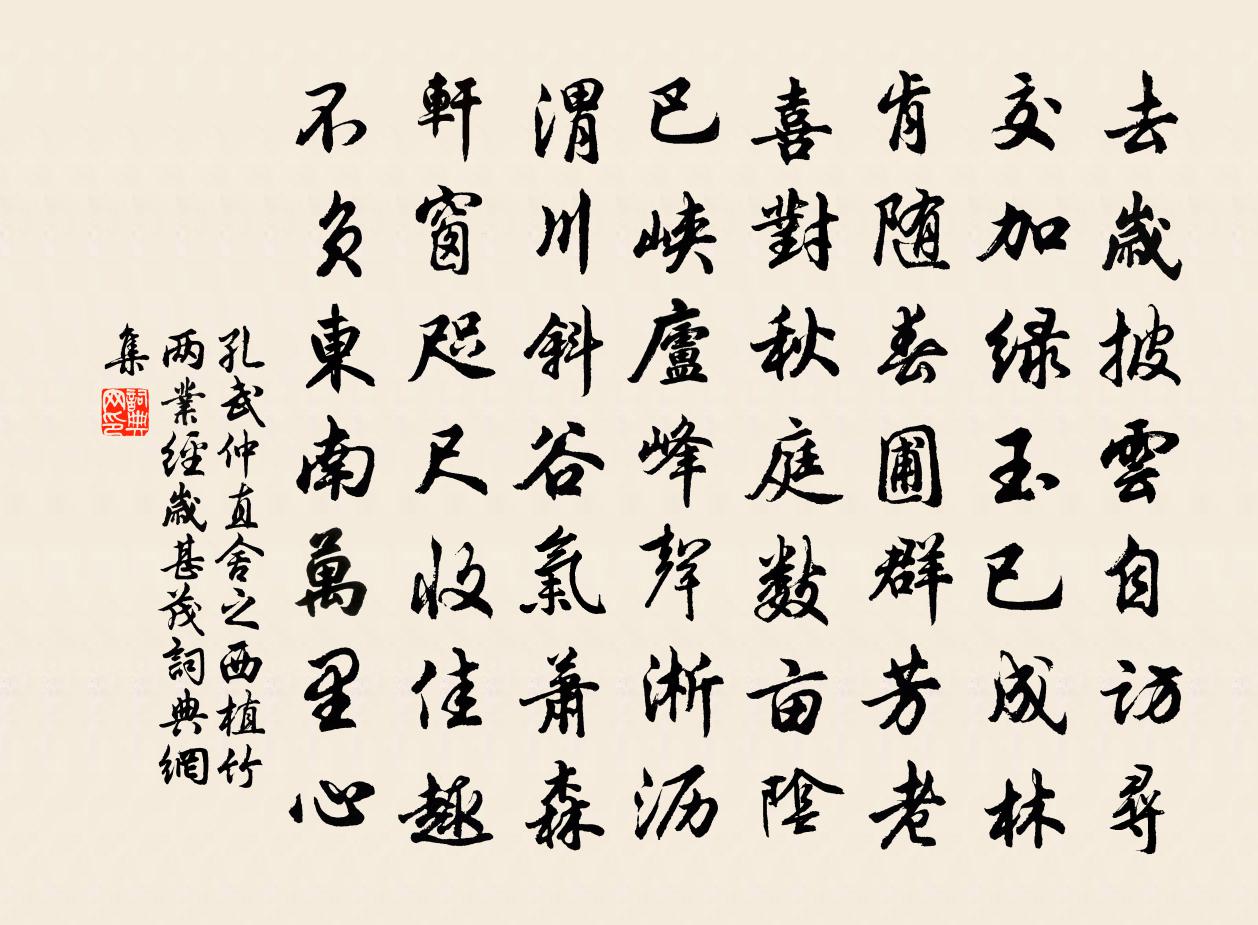 去歲披雲自訪尋
交加緑玉已成林
肯随春圃群芳老
喜對秋庭数亩陰
巴峡廬峰聲淅沥
渭川斜谷氣蕭森
軒窗咫尺收佳趣
不負東南萬里心
孔武仲直舍之西植竹
两業經歲甚茂詞典網
集
詞典
网印